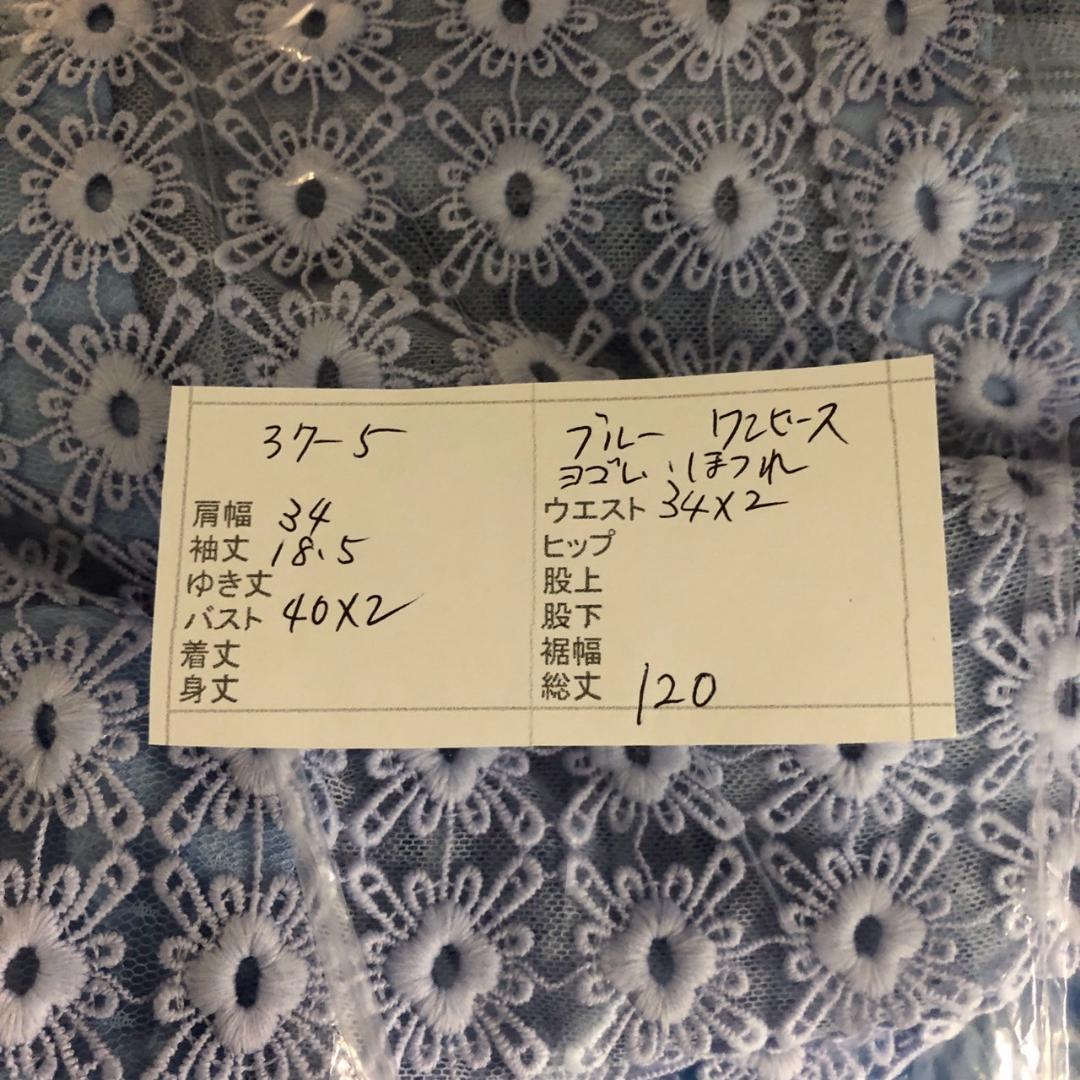 37-5
肩幅 34
袖丈 18.5
ゆき丈
バスト 40X2
着丈
身丈
ブルー ワンピース
ヨゴレ・ほつれ
ウエスト 34X2
ヒップ
股上
股下
裾幅
総丈 120